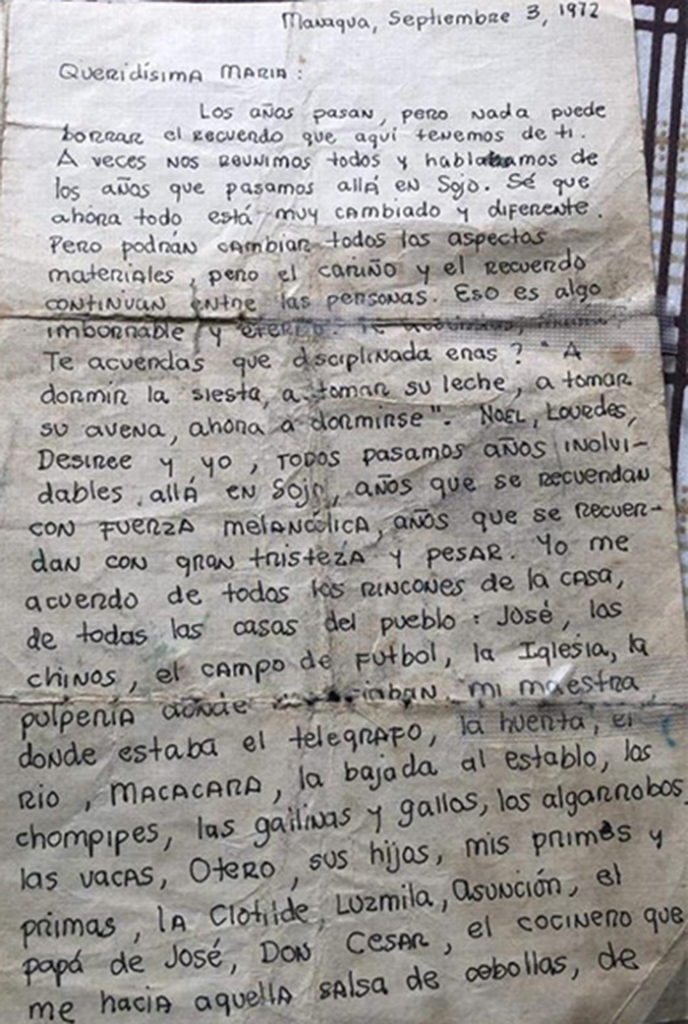 Managua, Septiembre 3, 1972
Queridísima María:
Los años pasan, pero nada puede
borrar el recuerdo que aquí tenemos de ti.
A veces nos reunimos todos y hablabamos de
los años que pasamos allá en Sojo. Sé que
ahora todo está muy cambiado y diferente.
Pero podrán cambiar todos los aspectos
materiales, pero el cariño y el recuerdo
continuan entre las personas. Eso es algo
imborrable y eterno. Te
Te acuerdas que disciplinada eras? "A
dormir la siesta, a tomar su leche, a tomar
su avena, ahora a dormirse". Noel, Lourdes,
Desiree y yo, todos pasamos años inolvi-
dables, allá en Sojo, años que se recuerdan
con fuerza melancólica, años que se recuer-
dan con gran tristeza y pesar. Yo me
acuerdo de todos los rincones de la casa,
de todas las casas del pueblo: José, los
chinos, el campo de futbol, la Iglesia, la
pulpería donde mi maestra,
donde estaba el telegrafo, la huerta, el
río, Macacara, la bajada al establo, los
chompipes, las gallinas y gallos, los algarrobos,
las vacas, Otero, sus hijos, mis primos y
primas, la Clotilde, Luzmila, Asunción, el
papá de José, Don Cesar, el cocinero que
me hacia aquella salsa de cebollas, de